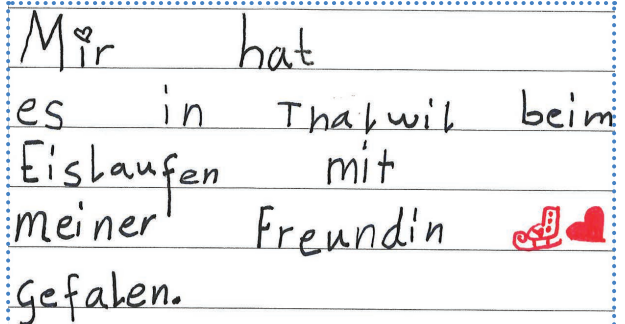 Mir hat
es in Thalwil beim
Eislaufen mit
meiner Freundin
gefalen.